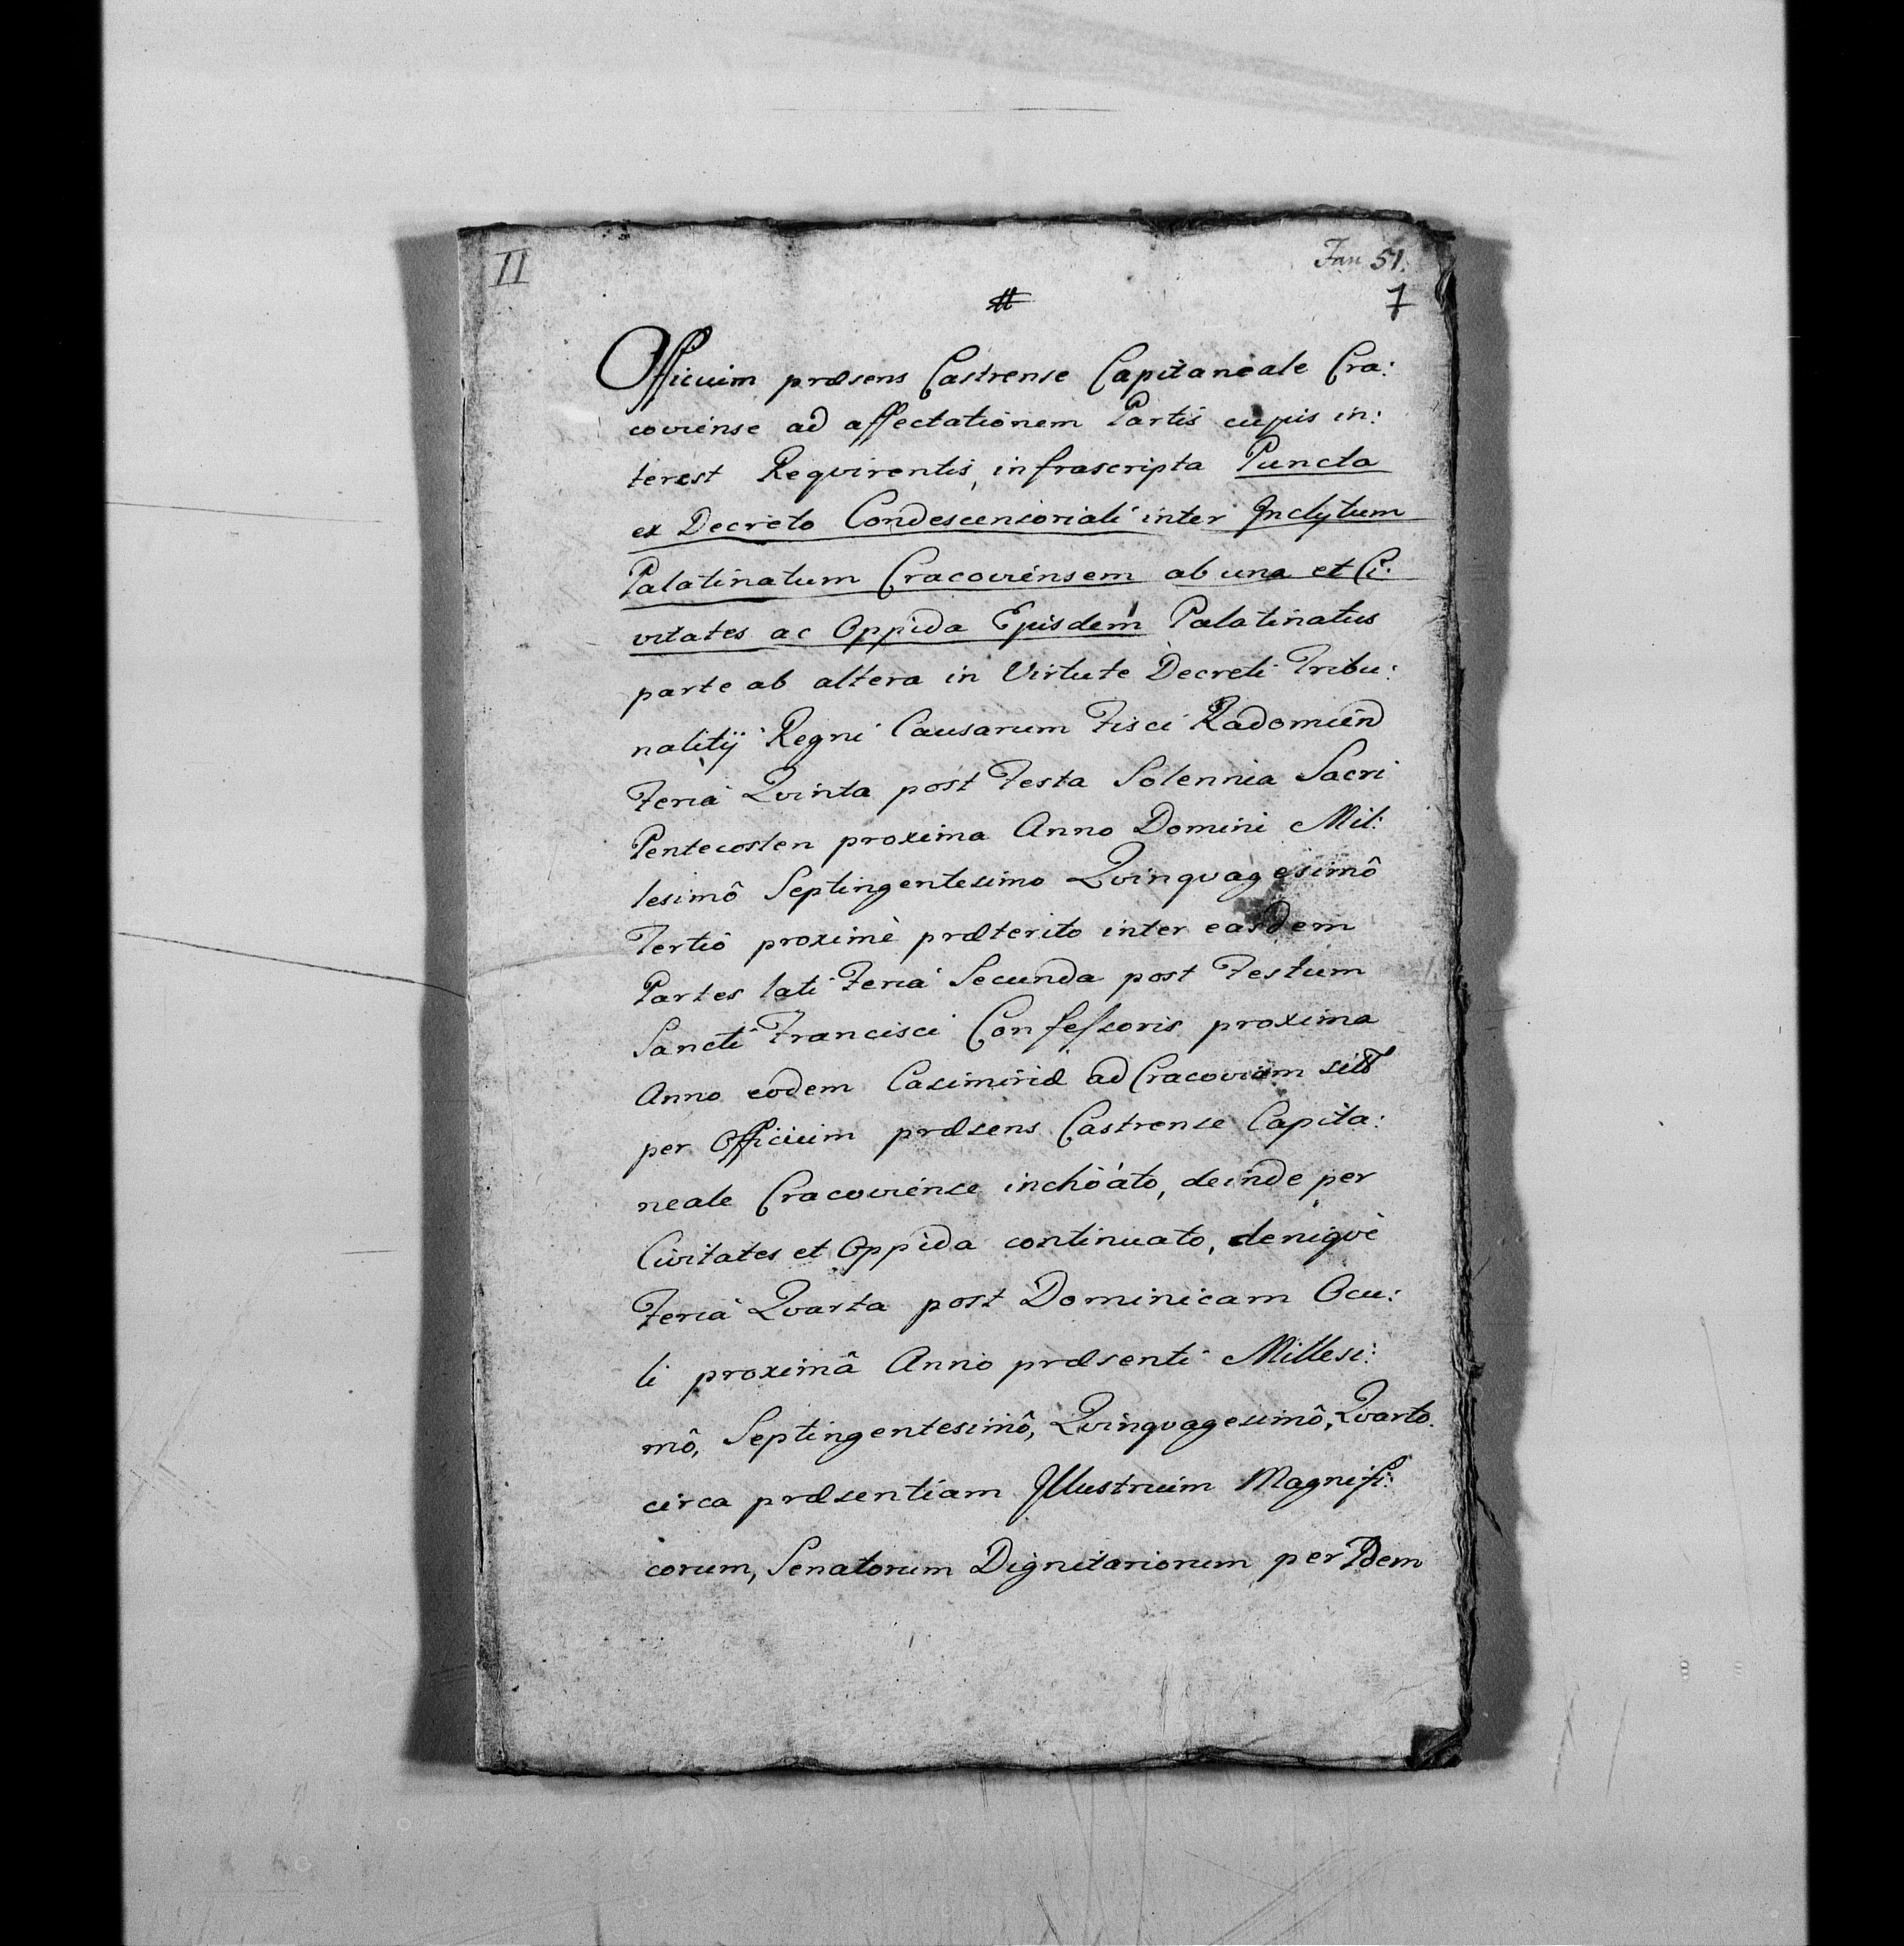 II
Fan 51.
7
#
Officium præsens Castrense Capitaneale Cra:
coviense ad affectationem Partis cujus in:
terest Reqvirentis, infrascripta Puncta
ex Decreto Condescensoriali inter Inclytum
Palatinatum Cracoviensem ab una et Ci:
vitates ac Oppida Ejusdem Palatinatus
parte ab altera in Virtute Decreti Tribu:
nalitij Regni Causarum Fisci Radomień
Feria Qvinta post Festa Solennia Sacri
Pentecosten proxima Anno Domini Mil:
lesimô Septingentesimo Qvinqvagesimô
Tertio proximè præterito inter easdem
Partes lati Feria Secunda post Festum
Sancti Francisci Confessoris proxima
Anno eodem Casimiriæ ad Cracoviam
per Officium præsens Castrense Capita:
neale Cracoviense inchoáto, deinde per
Civitates et Oppida continuato, deniqvè
Feria Qvarta post Dominicam Ocu:
li proximâ Anno præsenti Millesi:
mô, Septingentesimô, Qvinqvagesimô, Qvarto.
circa præsentiam Illustrium Magnifi:
corum, Senatorum Dignitariorum per